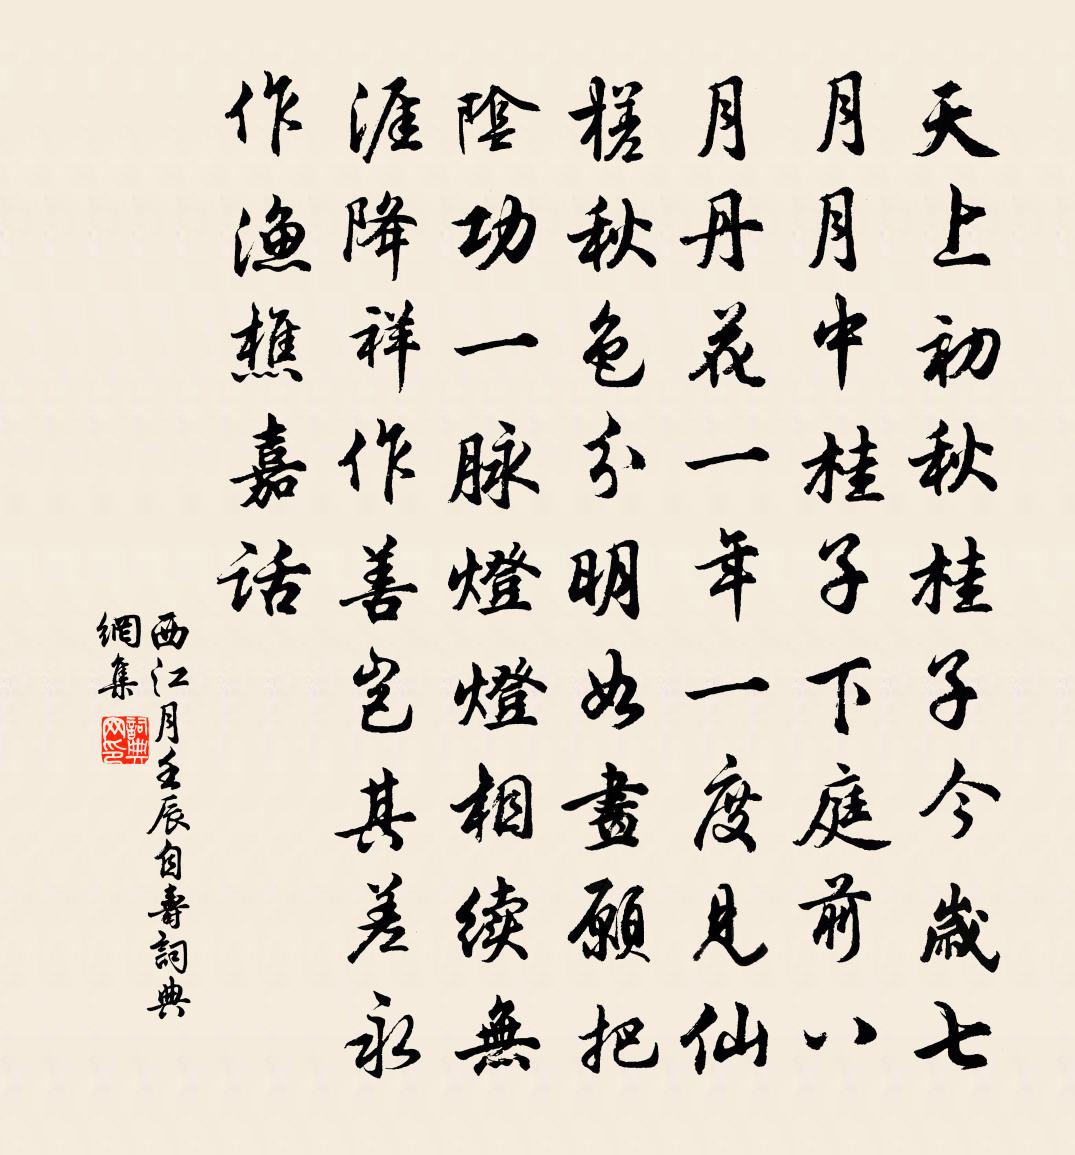 天上初秋桂子今歲七
月月中桂子下庭前八
月丹花一年一度見仙
槎秋色分明如畫願把
陰功一脉燈燈相續無
涯降祥作善豈其差永
作漁樵嘉話
西江月壬辰自壽詞典
網集
詞典網印